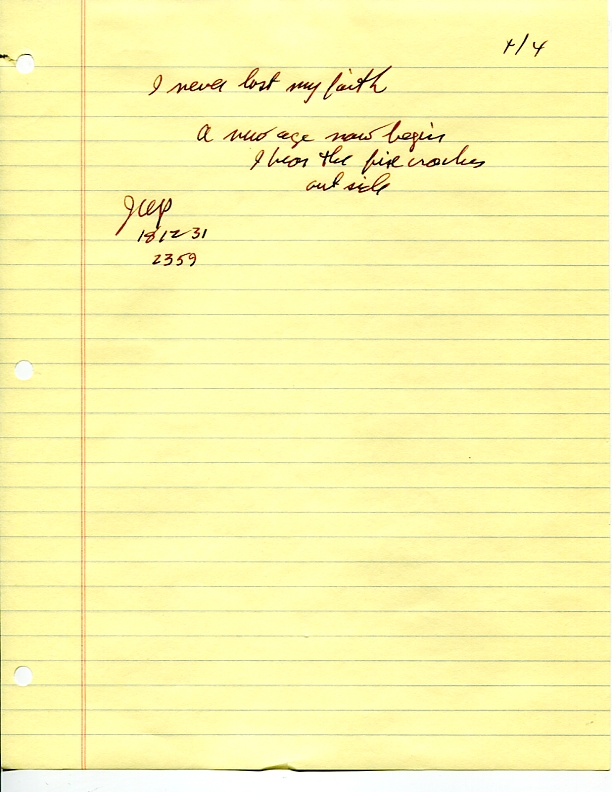 4/4
I never lost my faith
A new age now begins
I hear the fire crackers
outside
JWP
18 12 31
2359